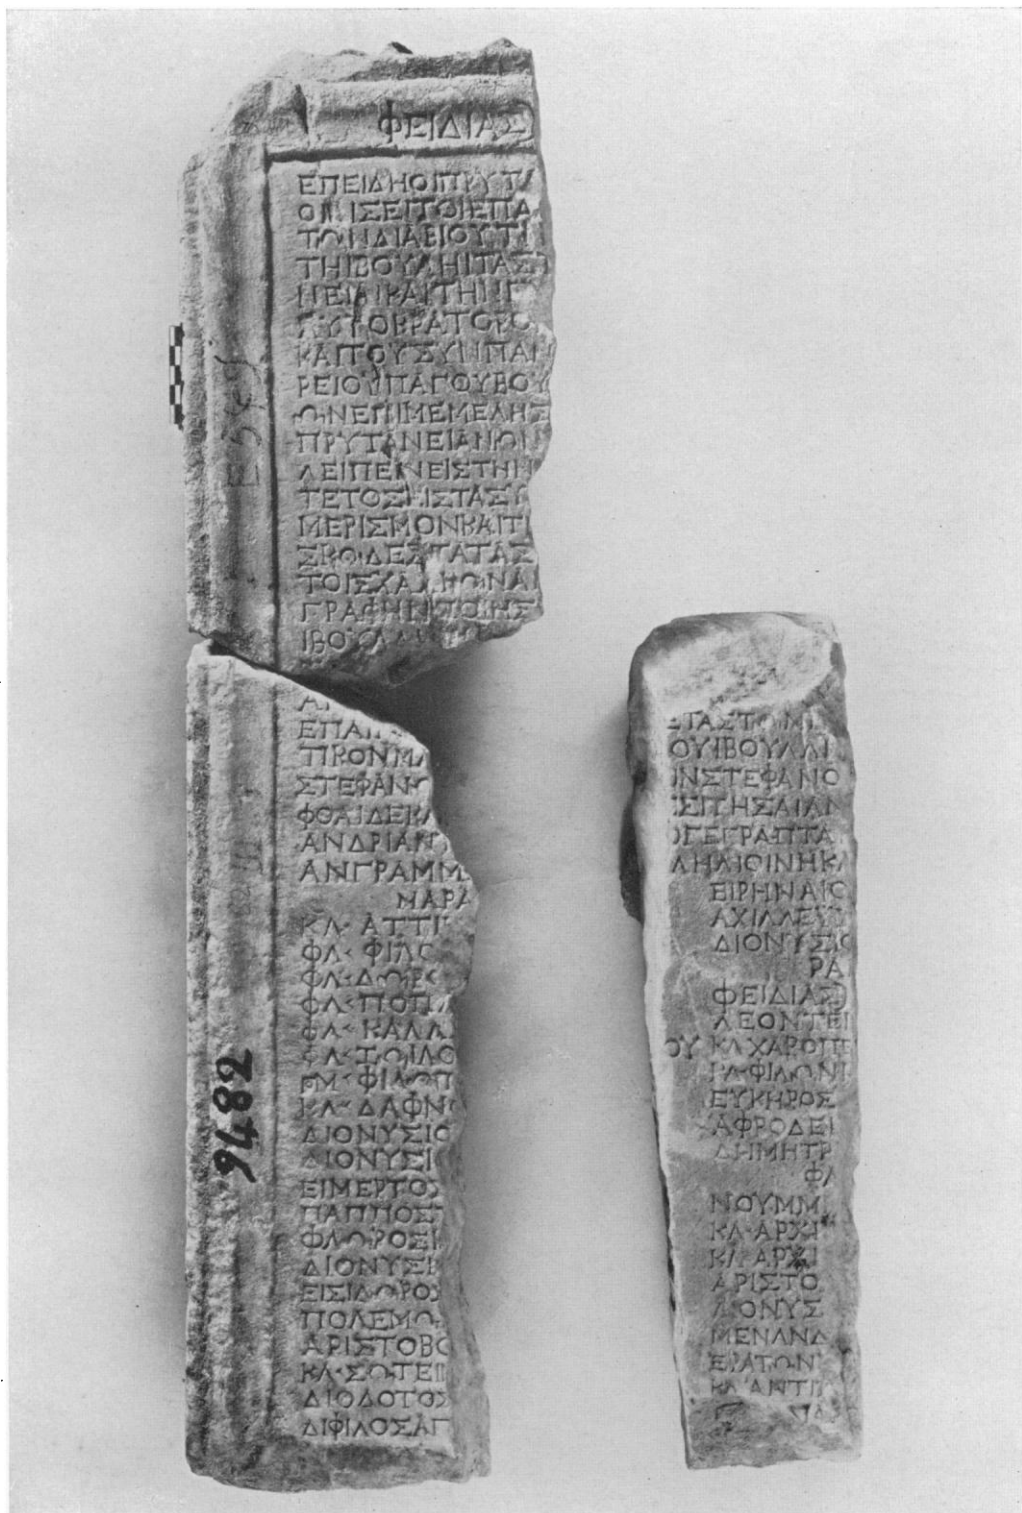 ΦΕΙΔΙΑΣ
ΕΠΕΙΔΗΟΙΠΡΥΤΑ
ΤΩΝΔΙΑΒΙΟΥΤΙ
ΤΗΙΒΟΥΛΗΙΤΑΣ
ΚΑΙΤΟΥΣΥΝΠΑΝ
ΡΕΙΟΥΠΑΓΟΥΒΟΥ
ΩΝΕΠΙΜΕΜΕΛΗΣ
ΠΡΥΤΑΝΕΙΑΝΩΝ
ΛΕΙΠΕΙΝΕΙΣΤΗΝ
ΤΕΤΟΣΗΙΣΤΑΣΥ
ΜΕΡΙΣΜΟΝΚΑΙΤΙ
ΓΡΑΦΗΝΤΩΙΗΣ
ΙΒΟΥΛΛΙ
ΕΠΑΓ
ΤΙΚΟΝΜΑ
ΣΤΕΦΑΝΟ
ΦΘΑΙΔΕΚΑ
ΑΝΔΡΙΑΝ
ΑΝΓΡΑΜΜ
ΜΑΡΑ
ΚΛ ΑΤΤΙ
ΦΛ ΦΙΛΟ
ΦΛ ΔΩΡΟ
ΦΛ ΠΟΤΙΛ
ΦΛ ΚΑΛΛ
ΦΛ ΖΩΙΛΟ
ΦΙΛΟΠ
ΚΛ ΔΑΦΝΟ
ΔΙΟΝΥΣΙΟ
ΔΙΟΝΥΣΙ
ΕΙΜΕΡΤΟΣ
ΠΑΠΠΟΣ
ΦΛΩΡΟΣΕΙ
ΔΙΟΝΥΣΙ
ΕΙΣΙΔΩΡΟΣ
ΠΟΛΕΜΩ
ΑΡΙΣΤΟΒΟ
ΚΛ ΣΩΤΕΙΡ
ΔΙΟΔΟΤΟΣ
ΔΙΦΙΛΟΣΑΠ
9482
ΕΤΑΣΤΩΝ
ΟΥΙΒΟΥΛΛΙ
ΩΝΣΤΕΦΑΝΟ
ΣΙΤΗΣΑΙΑΝ
ΟΓΕΓΡΑΠΤΑ
ΛΗΛΙΟΙΝΗΚΑ
ΕΙΡΗΝΑΙΟ
ΑΧΙΛΛΕΥΣ
ΔΙΟΝΥΣΙΟ
ΡΑ
ΦΕΙΔΙΑΣ
ΛΕΟΝΤΕΙ
ΟΥ ΚΛ ΧΑΡΟΠ
ΚΛ ΦΙΛΩΝΙ
ΕΥΚΗΡΟΣ
ΑΦΡΟΔΕΙ
ΔΗΜΗΤΡ
ΦΛ
ΝΟΥΜΜ
ΚΛ ΑΡΧΙ
ΚΛ ΑΡΧΙ
ΑΡΙΣΤΟ
ΔΙΟΝΥΣ
ΜΕΝΑΝΔ
ΕΡΑΤΩΝ
ΚΛ ΑΝΤΙΠ